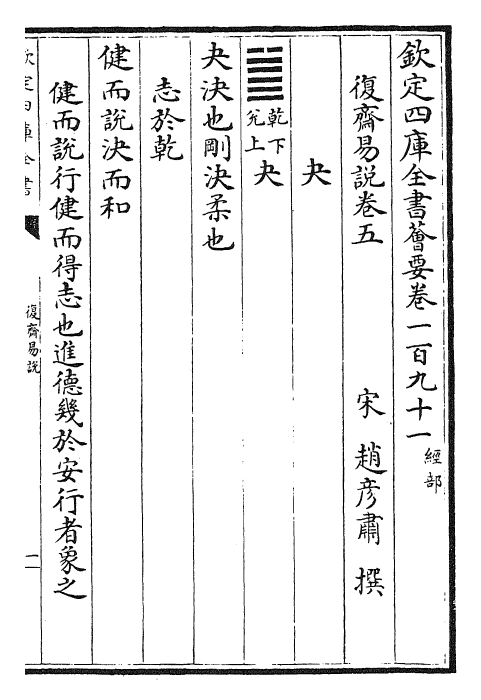 欽定四庫全書薈要卷一百九十一 經部
復齋易說卷五 宋 趙彥肅 撰
夬
乾下兌上 夬
夬決也剛決柔也
志於乾
健而說決而和
健而說行健而得志也進德幾於安行者象之
欽定四庫全書
復齋易說
一